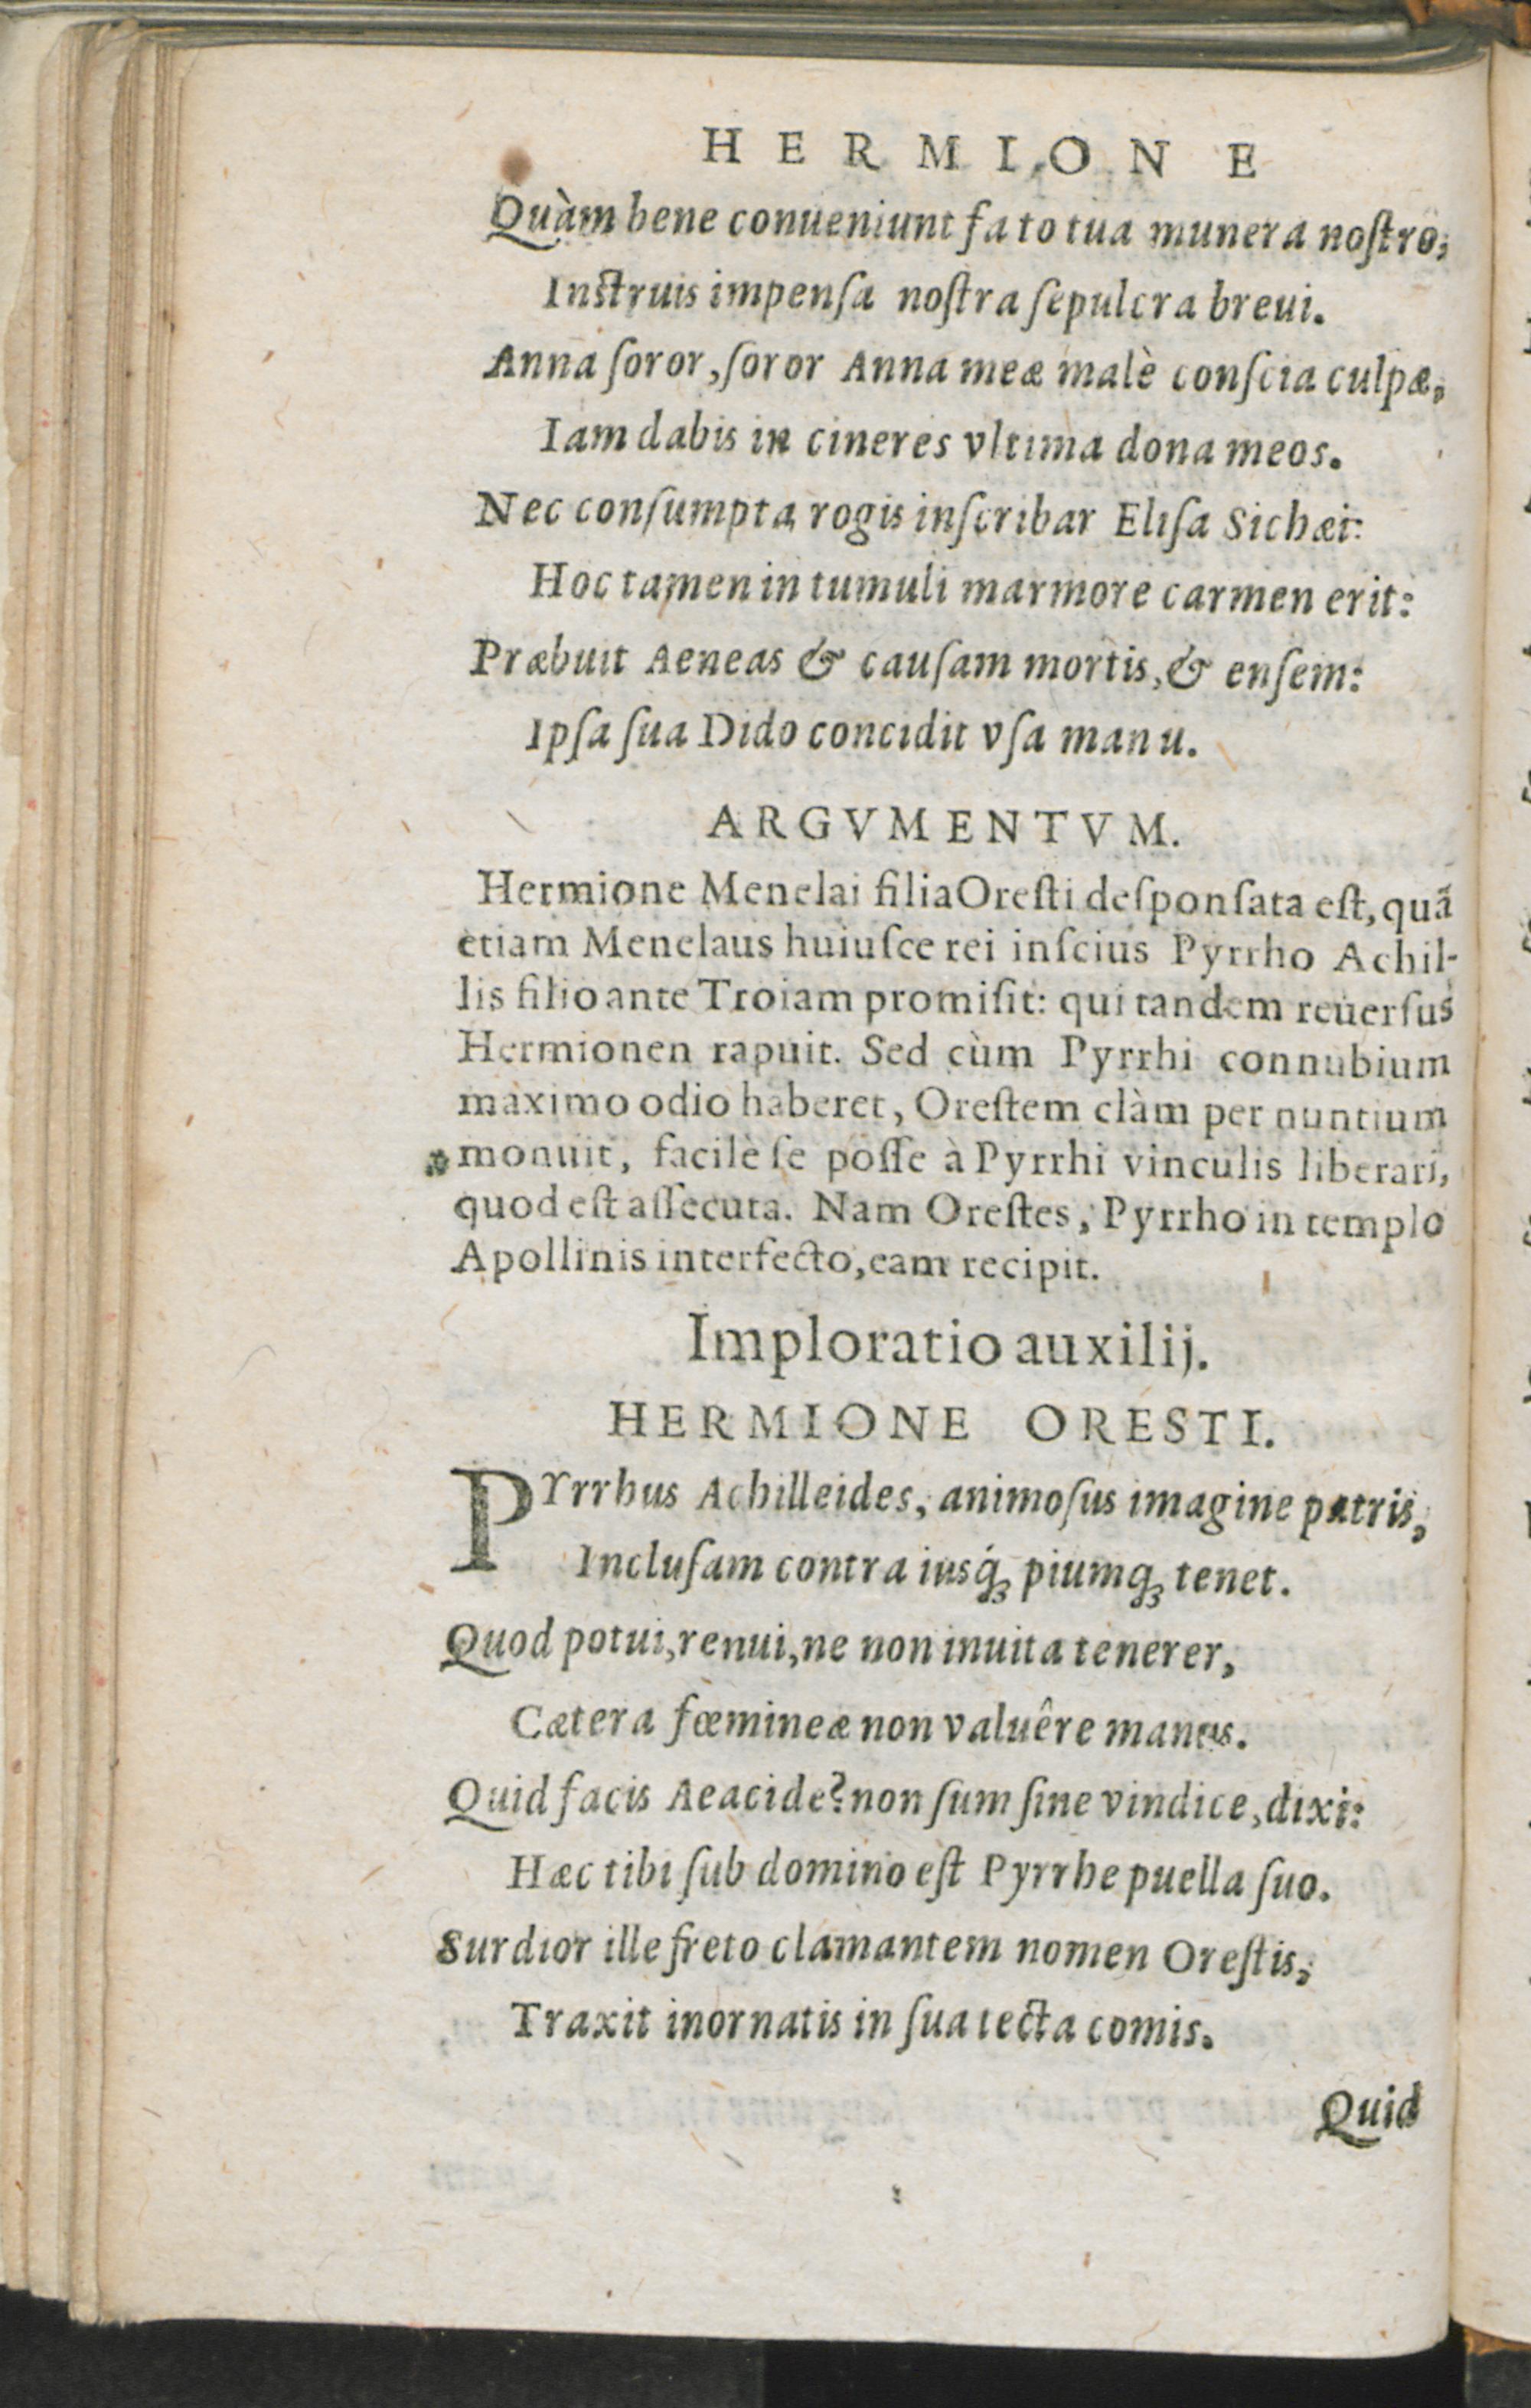 HERMIONE
Quàm bene conueniunt fato tua munera noſtro;
Inſtruis impenſa noſtra ſepulcra breui.
Anna ſoror, ſoror Anna meæ malè conſcia culpæ,
Iam dabis in cineres vltima dona meos.
Nec conſumpta rogis inſcribar Eliſa Sichæi:
Hoc tamen in tumuli marmore carmen erit:
Præbuit Aeneas & cauſam mortis, & enſem:
Ipſa ſua Dido concidit vſa manu.
ARGVMENTVM.
Hermione Menelai filia Oreſti deſponſata eſt, quã
etiam Menelaus huiuſce rei inſcius Pyrrho Achil-
lis filio ante Troiam promiſit: qui tandem reuerſus
Hermionen rapuit. Sed cùm Pyrrhi connubium
maximo odio haberet, Oreſtem clàm per nuntium
monuit, facilè ſe poſſe à Pyrrhi vinculis liberari,
quod eſt aſſecuta. Nam Oreſtes, Pyrrho in templo
Apollinis interfecto, eam recipit.
Imploratio auxilij.
HERMIONE ORESTI.
PYrrhus Achilleides, animoſus imagine patris,
Incluſam contra iusq́; piumq; tenet.
Quod potui, renui, ne non inuita tenerer,
Cætera fœmineæ non valuêre manus.
Quid facis Aeacide? non ſum ſine vindice, dixi:
Hæc tibi ſub domino eſt Pyrrhe puella ſuo.
Surdior ille freto clamantem nomen Oreſtis,
Traxit inornatis in ſua tecta comis.
Quid